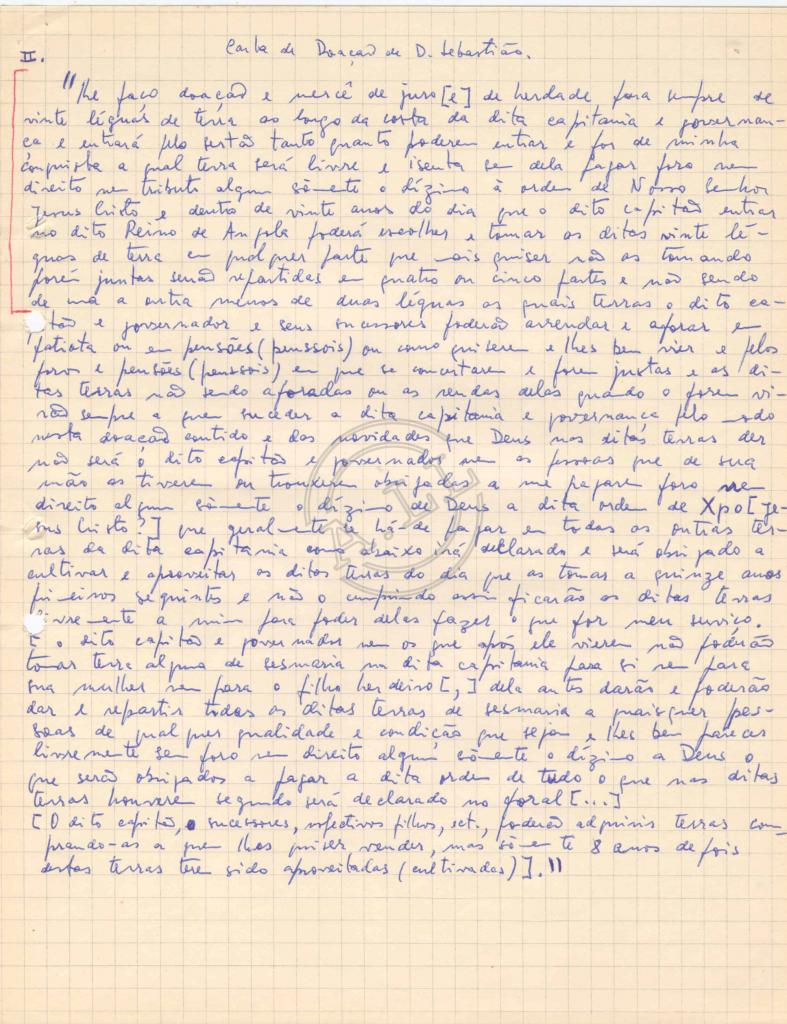 II. Carta de Doação de D. Sebastião.
"lhe faço doação e mercê de juro [e] de herdade para sempre de
vinte léguas de terra ao longo da costa da dita capitania e governan-
ça e entrará pelo sertão tanto quanto poderem entrar e for de minha
conquista a qual terra será livre e isenta sem dela pagar foro nem
direito nem tributo algum sòmente o dízimo à ordem de Nosso Senhor
Jesus Cristo e dentro de vinte anos do dia que o dito capitão entrar
no dito Reino de Angola poderá escolher e tomar as ditas vinte lé-
guas de terra em qualquer parte que mais quiser não as tomando
porém juntas senão repartidas em quatro ou cinco partes e não sendo
de uma a outra menos de duas léguas as quais terras o dito ca-
pitão e governador e seus sucessores poderão arrendar e aforar em
fatiota ou em pensões (penssois) ou como quiserem e lhes bem vier e pelos
foros e pensões (penssois) em que se concertarem e forem justas e as di-
tas terras não sendo aforadas ou as rendas delas quando o forem vi-
rão sempre a quem suceder a dita capitania e governança pelo modo
nesta doação contido e das novidades que Deus nas ditas terras der
não será o dito capitão e governador nem as pessoas que de sua
mão as tiverem ou trouxerem obrigadas a me pagarem foro nem
direito algum sòmente o dízimo de Deus a dita ordem de Xpo [Je-
sus Cristo?] que geralmente se há-de pagar em todas as outras ter-
ras da dita capitania como abaixo irá declarado e será obrigado a
cultivar e aproveitar as ditas terras do dia que as tomar a quinze anos
primeiros seguintes e não o cumprindo assim ficarão as ditas terras
livremente a mim para poder delas fazer o que for meu serviço.
E o dito capitão e governador nem os que após ele vierem não poderão
tomar terra alguma de sesmaria na dita capitania para si nem para
sua mulher nem para o filho herdeiro [,] dela antes darão e poderão
dar e repartir todas as ditas terras de sesmaria a quaisquer pes-
soas de qualquer qualidade e condição que sejam e lhes bem parecer
livremente sem foro nem direito algum sòmente o dízimo a Deus o
que serão obrigados a pagar a dita ordem de tudo o que nas ditas
terras houverem segundo será declarado no foral [...]
[O dito capitão, sucessores, respectivos filhos, ect., poderão adquirir terras com-
prando-as a quem lhas quiser vender, mas sòmente 8 anos depois
destas terras terem sido aproveitadas (cultivadas)]."